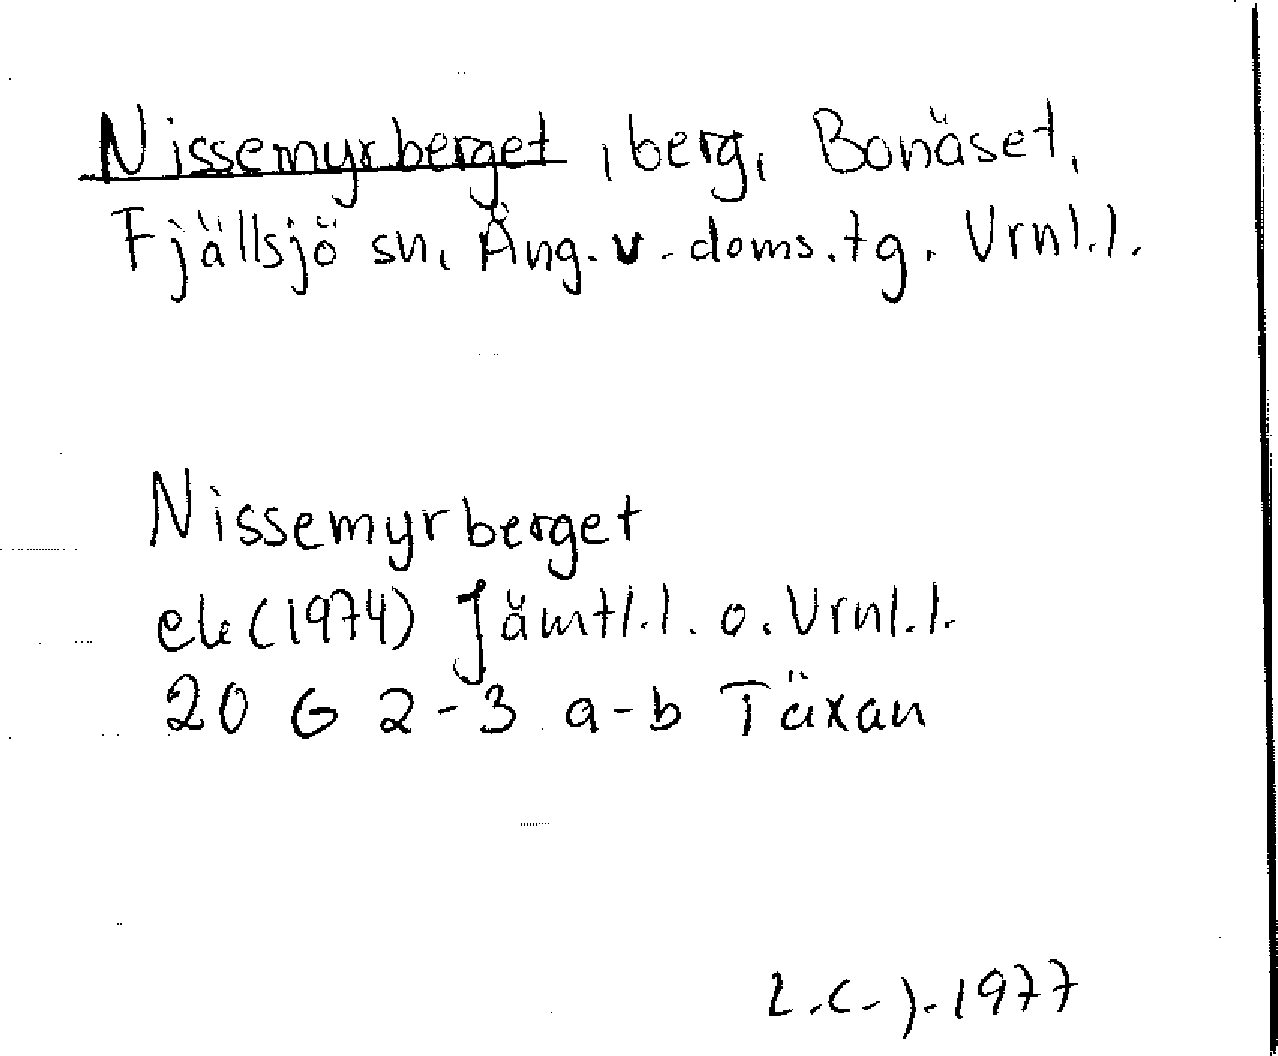 Nissemyrberget, berg, Bonäset,
Fjällsjö sn, Ång. v. doms.tg. Vrnl.l.
Nissemyrberget
ek (1974) Jämtl.l. o. Vrnl.l.
20 G 2-3 a-b Täxan
L.C.J. 1977